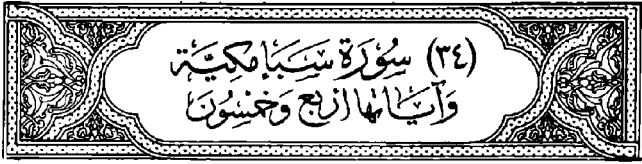 (٣٤) سُورَة سَبَإ مَكيَّة
وَآيَاتُهَا أربَع وَخَمْسُونَ